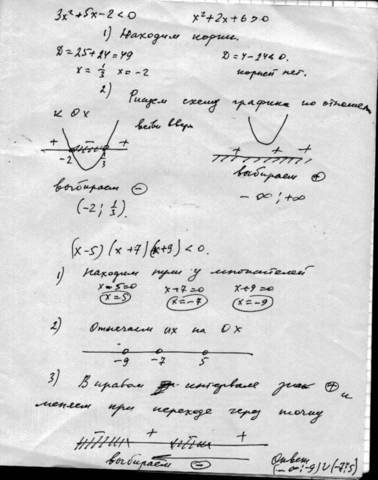 3x²+5x-2<0   x²+2x+6>0
1) Находим корни.
D=25+24=49   D=4-24<0.
x=1/3  x=-2   корней нет.
2)
Рисуем схему графика по отношен.
к OX   ветви вверх
+ - +   + + +
-2  1/3
выбираем ⊖   выбираем ⊕
(-2; 1/3).   -∞; +∞
(x-5)(x+7)(x+9)<0.
1) Находим нули у множителей
x-5=0  x+7=0  x+9=0
x=5  x=-7  x=-9
2) Отмечаем их на OX
-9  -7  5
3) В правом интервале знак ⊕ и
меняем при переходе через точку
- + - +
выбираем ⊖   Ответ
(-∞;-9)∪(-7;5)